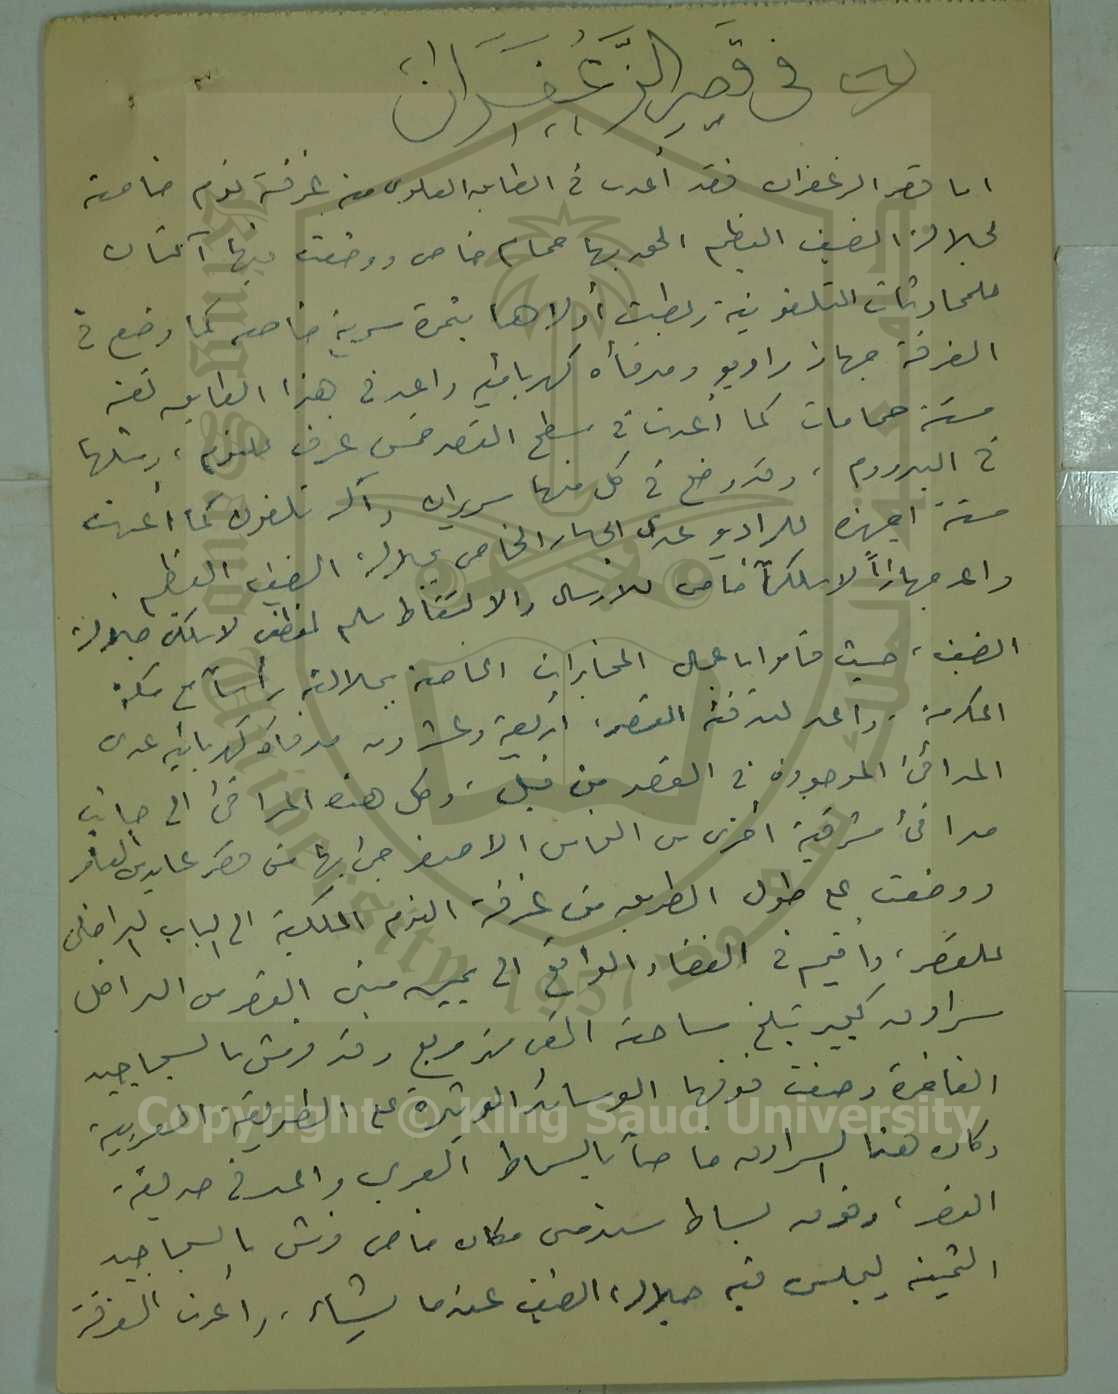 في قصر الزعفران
اما قصر الزعفران فقد أعدت في الطابق العلوى منه غرفة نوم خاصة
لجلالة الضيف العظيم الحق بها حمام خاص ووضعت فيها آلتان
للمحادثات التلفونية ربطت أولاهما بنمرة سرية خاصة كما وضع في
الغرفة جهاز راديو ومدفأه كهربائيه واعد في هذا الطابق نفسه
ستة حمامات كما أعدت في سطح القصر خمس غرف للنوم، ومثلها
في البدروم، وقد وضع في كل منها سريران وآلة تلفون كما أعدت
ستة أجهزه للراديو عدى الجهاز الخاص بجلالة الضيف العظيم
واعد جهازاً لاسلكيا خاص للارسال والالتقاط سلم لموظفى لاسلكى جلالة
الضيف، حيث قاموا باعمال المخابرات الخاصة بجلالته رأساً مع مكة
المكرمة، واعد لتدفئة القصر، أربعة وعشرون مدفأه كهربائيه عدى
المدافئ الموجوده في القصر من قبل، وكل هذه المدافئ الى جانب
مدافئ شرقية أخرى من النحاس الاصفر جئ بها من قصر عابدين العامر
ووضعت على طول الطريق من غرفة النوم الملكية الى الباب الداخلى
للقصر، واقيم في الفضاء الواقع الى يمين مبنى القصر من الداخل
سرادق كبير تبلغ مساحته الف متر مربع وقد فرش بالسجاجيد
الفاخرة وصفت فوقها الوسائد الوثيرة على الطريقة العربية
وكان هذا السرادق خاصاً بالسماط العربي واعد في حديقة
القصر، وفوق بساط سندسى مكان خاص فرش بالسجاجيد
الثمينه ليجلس فيه جلالة الضيف عندما يشاء، واعدت الغرفة
King Saud University
1957
Copyright © King Saud University